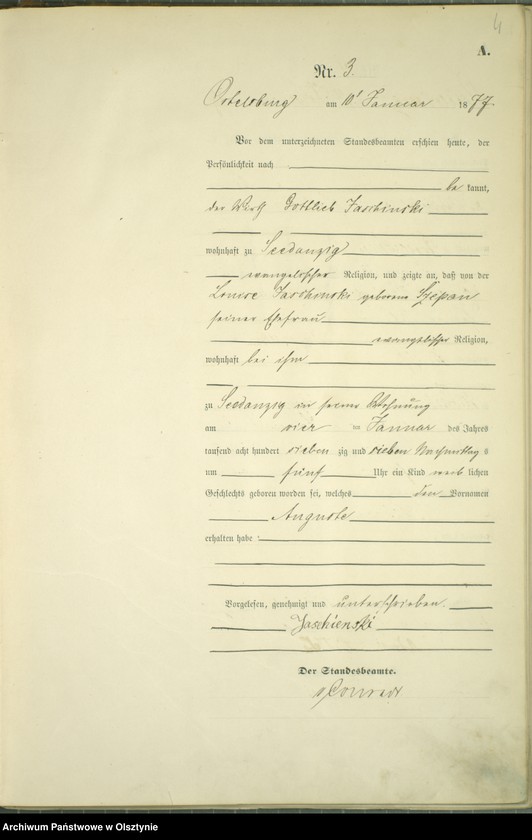 4
A.
Nr. 3.
Ortelsburg am 10t Januar 1877.
Vor dem unterzeichneten Standesbeamten erschien heute, der
Persönlichkeit nach
be kannt,
der Gottlieb Jaschinski
wohnhaft zu Seedanzig
evangelischer Religion, und zeigte an, daß von der
Louise Jaschinski geborene Szepan
seiner Ehefrau
evangelischer Religion,
wohnhaft bei ihm
zu Seedanzig in seiner Wohnung
am vier ten Januar des Jahres
tausend acht hundert sieben zig und sieben Nachmittag s
um fünf Uhr ein Kind weib lichen
Geschlechts geboren worden sei, welches den Vornamen
Auguste
erhalten habe.
Vorgelesen, genehmigt und unterschrieben.
Jaschienski
Der Standesbeamte.
Conradt
Archiwum Państwowe w Olsztynie